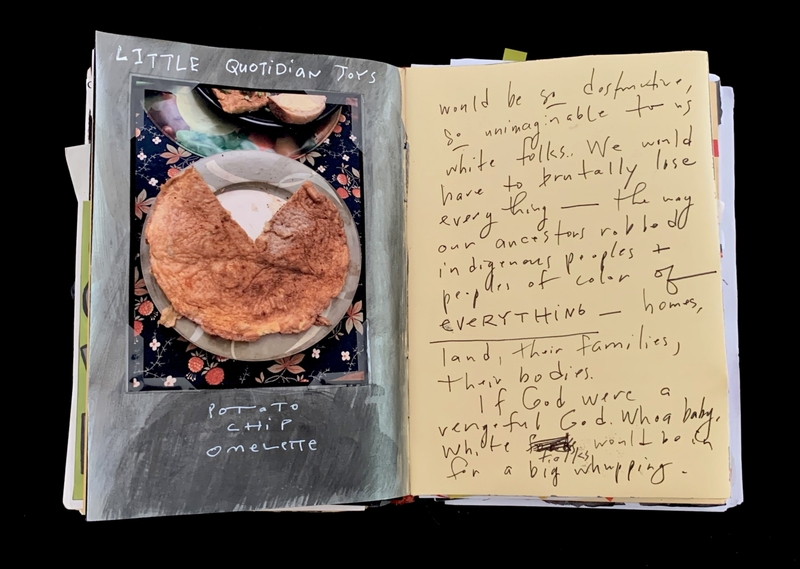 LITTLE QUOTIDIAN JOYS
POTATO
CHIP
OMELETTE
would be so destructive,
so unimaginable to us
white folks. We would
have to brutally lose
everything — the way
our ancestors robbed
indigenous peoples +
peoples of color of —
EVERYTHING — homes,
land, their families,
their bodies.
If God were a
vengeful God. Whoa baby.
White folks would be in
for a big whupping.